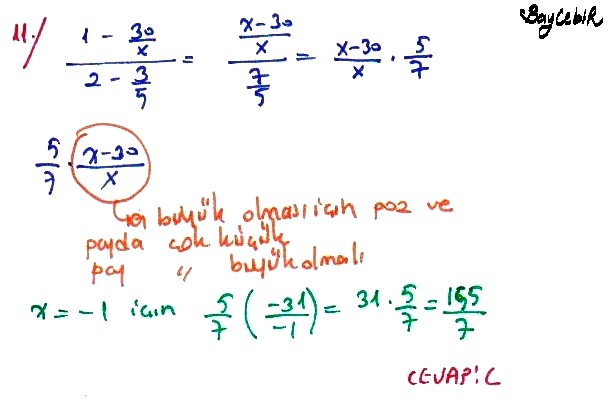 BayCebir
11./ (1 - 30/x)/(2 - 3/5) = ((x-30)/x)/(7/5) = (x-30)/x · 5/7
5/7 · (x-30)/x
büyük olması için poz ve
payda çok küçük
pay " büyük olmalı
x = -1 için 5/7 (-31/-1) = 31 · 5/7 = 155/7
CEVAP: C